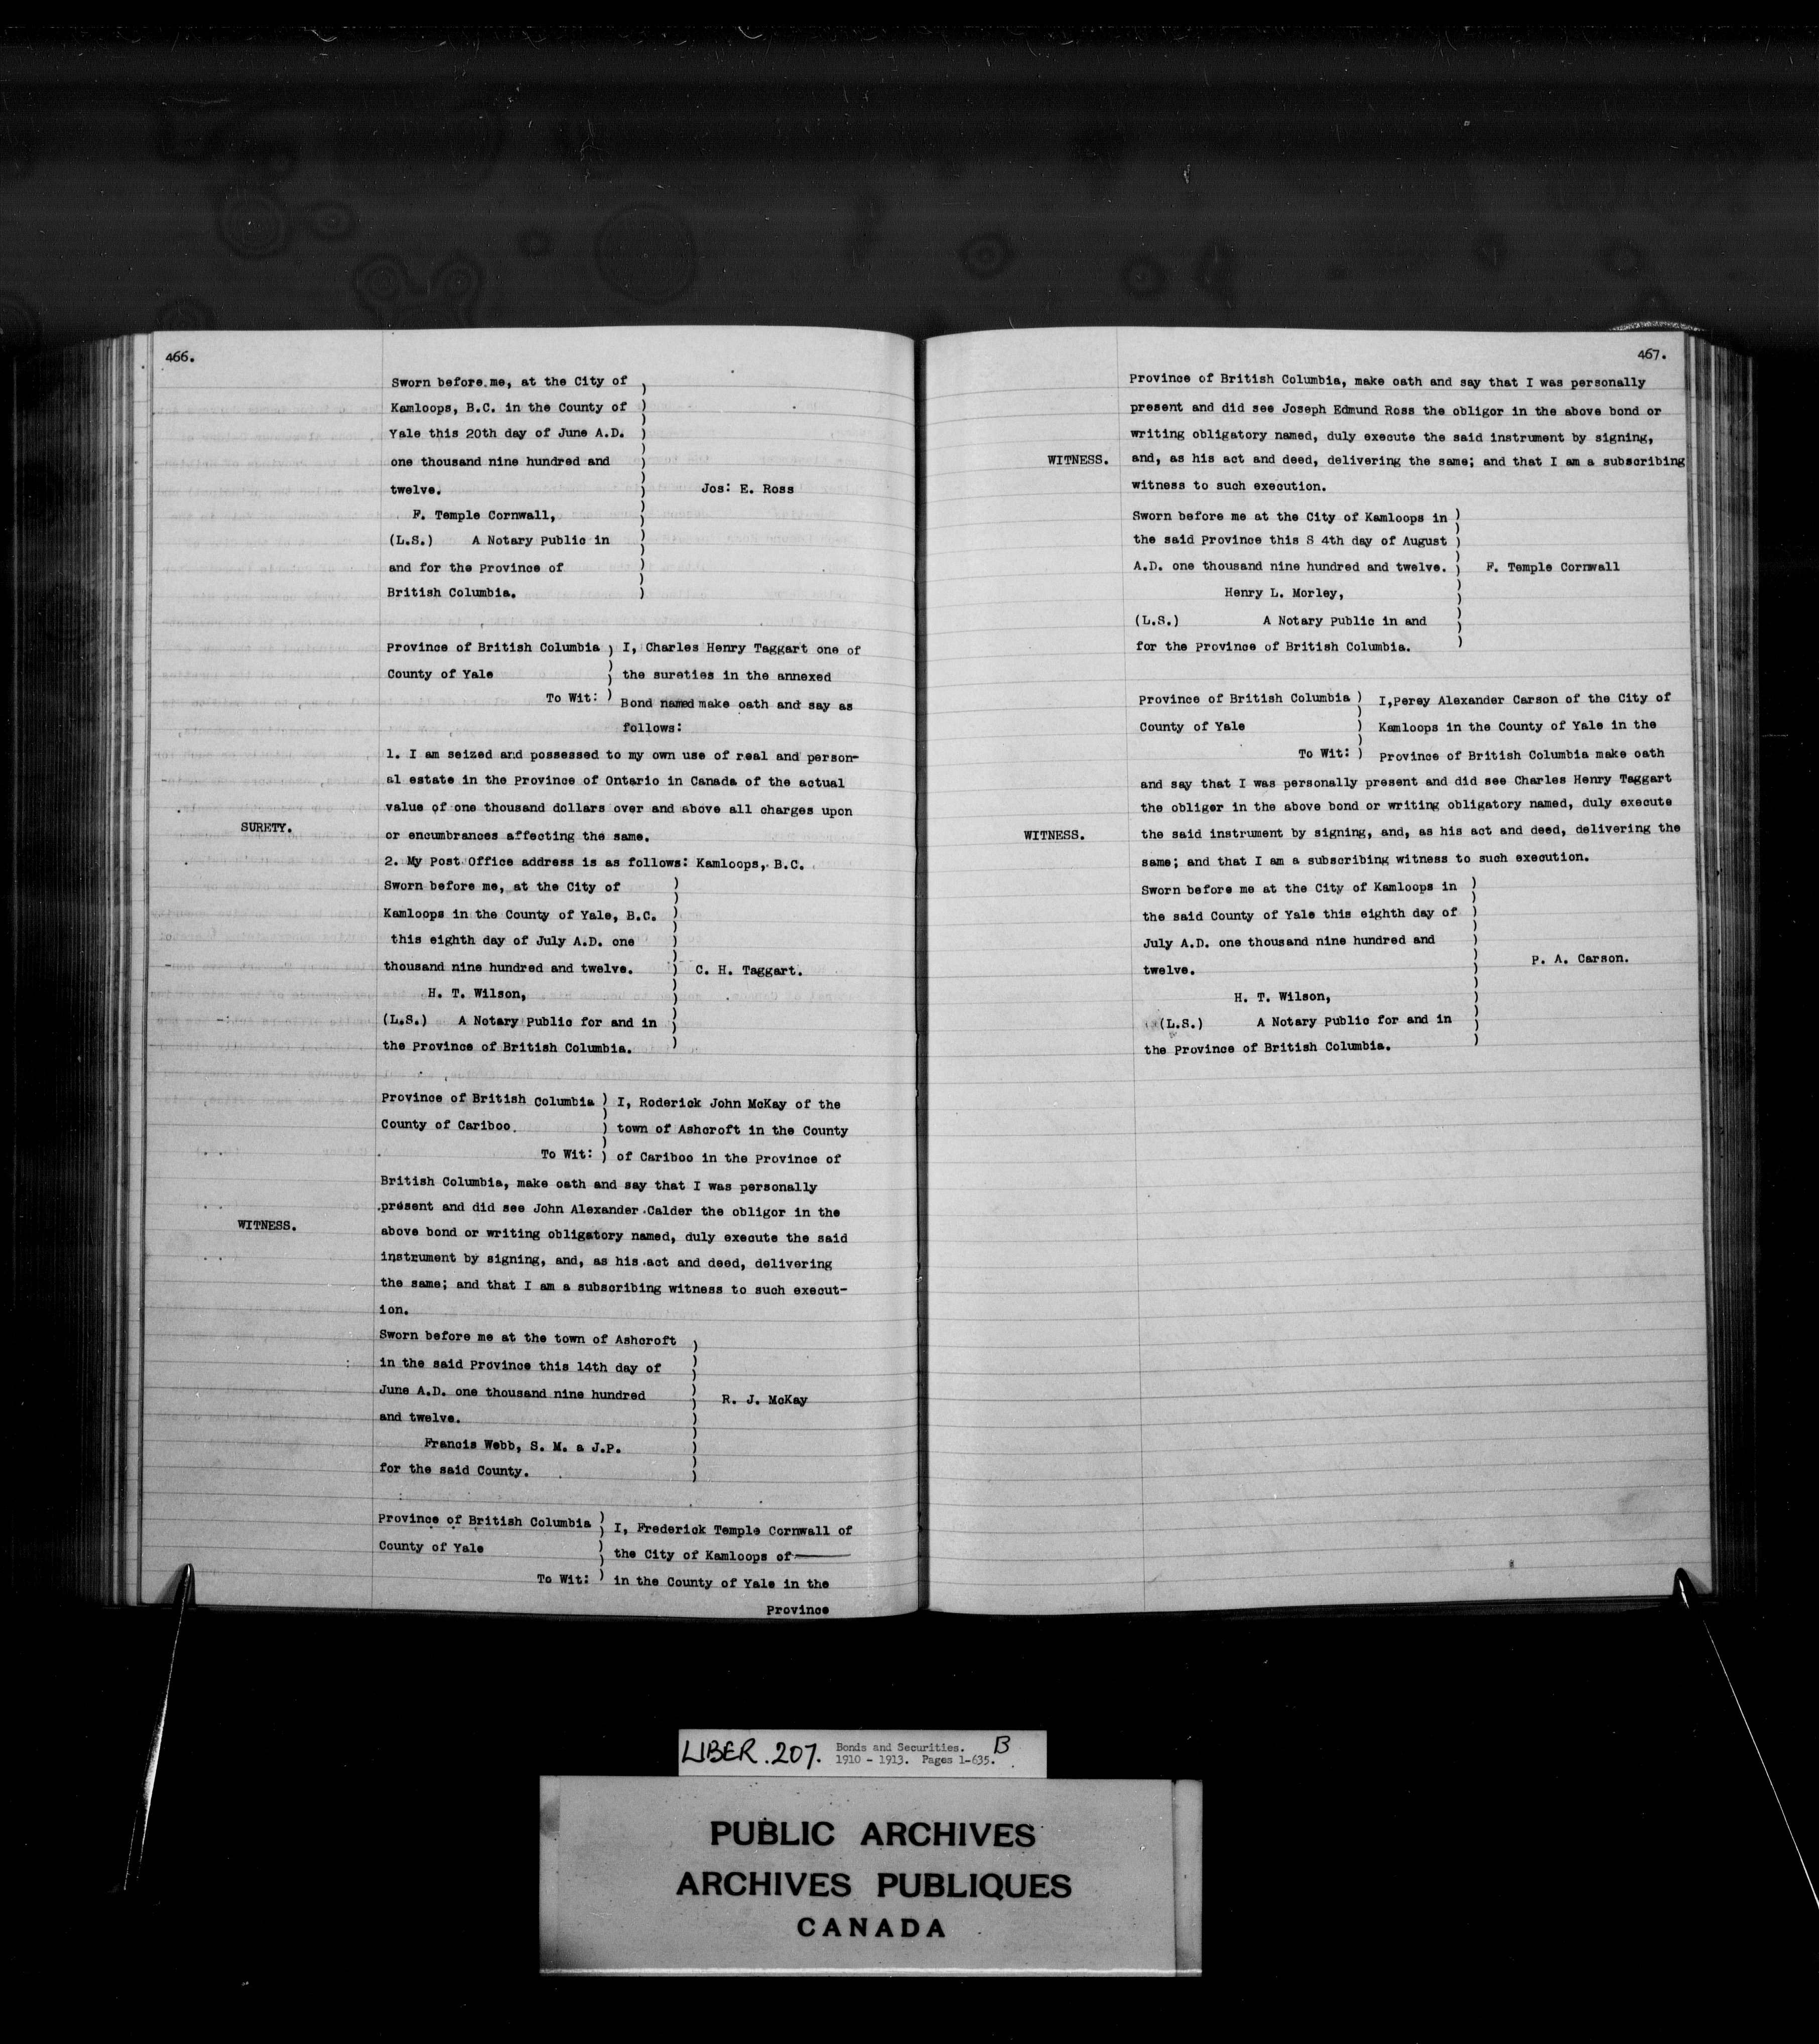 466.
Sworn before me, at the City of )
Kamloops, B.C. in the County of )
Yale this 20th day of June A.D. )
one thousand nine hundred and )
twelve. ) Jos: E. Ross
F. Temple Cornwall, )
(L.S.) A Notary Public in )
and for the Province of )
British Columbia. )
Province of British Columbia ) I, Charles Henry Taggart one of
County of Yale ) the sureties in the annexed
To Wit: ) Bond named make oath and say as
follows:
1. I am seized and possessed to my own use of real and person-
al estate in the Province of Ontario in Canada of the actual
value of one thousand dollars over and above all charges upon
SURETY.
or encumbrances affecting the same.
2. My Post Office address is as follows: Kamloops, B.C.
Sworn before me, at the City of )
Kamloops in the County of Yale, B.C. )
this eighth day of July A.D. one )
thousand nine hundred and twelve. ) C. H. Taggart.
H. T. Wilson, )
(L.S.) A Notary Public for and in )
the Province of British Columbia. )
Province of British Columbia ) I, Roderick John McKay of the
County of Cariboo. ) town of Ashcroft in the County
To Wit: ) of Cariboo in the Province of
British Columbia, make oath and say that I was personally
present and did see John Alexander Calder the obligor in the
WITNESS.
above bond or writing obligatory named, duly execute the said
instrument by signing, and, as his act and deed, delivering
the same; and that I am a subscribing witness to such execut-
ion.
Sworn before me at the town of Ashcroft )
in the said Province this 14th day of )
June A.D. one thousand nine hundred ) R. J. McKay
and twelve. )
Francis Webb, S. M. a J.P. )
for the said County. )
Province of British Columbia ) I, Frederick Temple Cornwall of
County of Yale ) the City of Kamloops of
To Wit: ) in the County of Yale in the
Province
467.
Province of British Columbia, make oath and say that I was personally
present and did see Joseph Edmund Ross the obligor in the above bond or
writing obligatory named, duly execute the said instrument by signing,
WITNESS. and, as his act and deed, delivering the same; and that I am a subscribing
witness to such execution.
Sworn before me at the City of Kamloops in )
the said Province this S 4th day of August )
A.D. one thousand nine hundred and twelve. ) F. Temple Cornwall
Henry L. Morley, )
(L.S.) A Notary Public in and )
for the Province of British Columbia. )
Province of British Columbia ) I,Percy Alexander Carson of the City of
County of Yale ) Kamloops in the County of Yale in the
To Wit: ) Province of British Columbia make oath
and say that I was personally present and did see Charles Henry Taggart
the obliger in the above bond or writing obligatory named, duly execute
WITNESS. the said instrument by signing, and, as his act and deed, delivering the
same; and that I am a subscribing witness to such execution.
Sworn before me at the City of Kamloops in )
the said County of Yale this eighth day of )
July A.D. one thousand nine hundred and ) P. A. Carson.
twelve. )
H. T. Wilson, )
(L.S.) A Notary Public for and in )
the Province of British Columbia. )
LIBER.207. Bonds and Securities. B
1910 - 1913. Pages 1-635.
PUBLIC ARCHIVES
ARCHIVES PUBLIQUES
CANADA